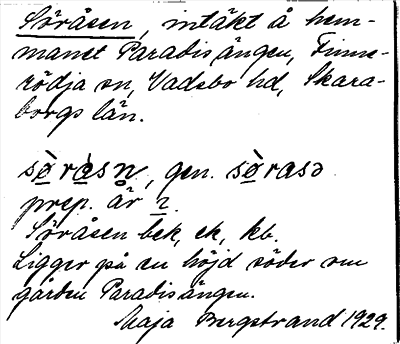 Söråsen, intäkt å hem-
manet Paradisängen, Finne-
rödja sn, Vadsbo hd, Skara-
borgs län.
sø̀rasn, gen. sø̀rasə
prep. år 2.
Söråsen bek, ek, kb.
Ligger på en höjd söder om
gården Paradisängen.
Maja Bergstrand 1929.